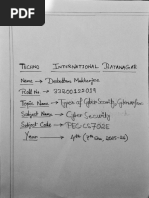 TECHNO INTERNATIONAL BATANAGAR
Name → Debattam Mukherjee
Roll No → 33200122019
Topic Name → Types of Cyber Security, Cyberwarfare
Subject Name → Cyber Security
Subject Code → PEC-CS702E
Year → 4th (7th Sem, 2025-26)